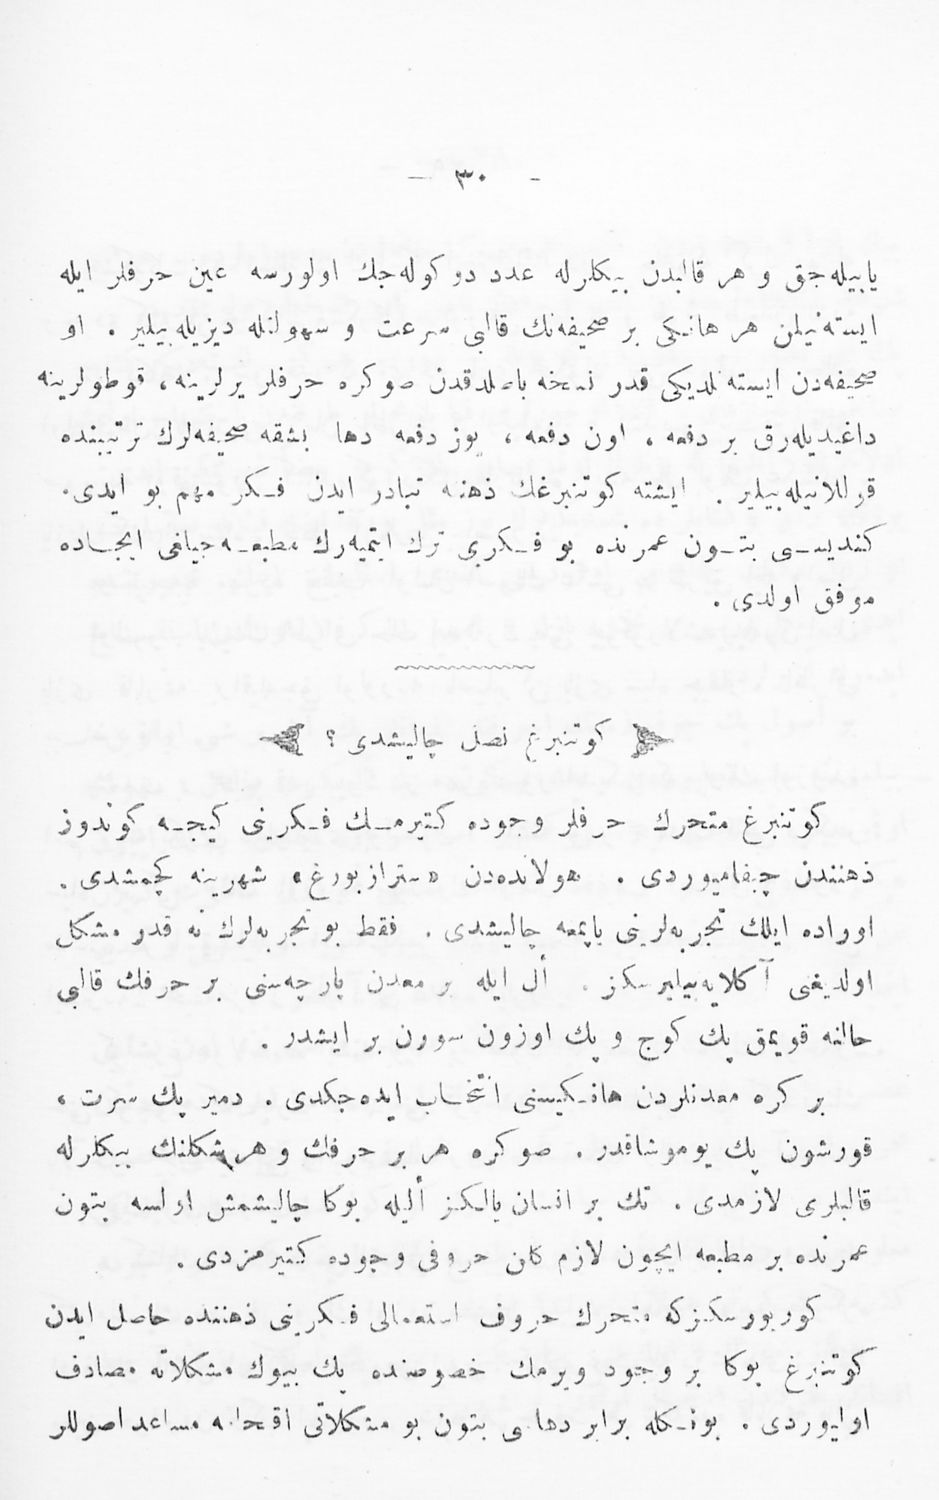 - ٣٠ -
یاپیله‌جق و هر قالبدن بیكلرله عدد دوكوله‌جك اولورسه عین حرفلر ایله
ایسته‌نیلن هر هانكی بر صحیفه‌نك قالبی سرعت و سهولتله دیزیله‌بیلیر . او
صحیفه‌دن ایسته‌نلدیكی قدر نسخه باصلدقدن صوكره حرفلر یرلرینه ، قوطولرینه
داغیدیله‌رق بر دفعه ، اون دفعه ، یوز دفعه دها بشقه صحیفه‌لرك ترتیبنده
قوللانیله‌بیلیر . ایشته كوتنبرغك ذهنه تبادر ایدن فكر مهم بو ایدی .
كندیسی بتون عمرنده بو فكری ترك ایتمیه‌رك مطبعه‌جیلغی ایجاده
موفق اولدی .
كوتنبرغ نصل چالیشدی ؟
كوتنبرغ متحرك حرفلر وجوده كتیرمك فكرینی كیجه كوندوز
ذهنندن چیقامیوردی . هولانده‌دن « سترازبورغ » شهرینه كچمشدی .
اوراده ایلك تجربه‌لرینی یاپمغه چالیشدی . فقط بو تجربه‌لرك نه قدر مشكل
اولدیغنی آكلایه‌بیلیرسكز . أل ایله بر معدن پارچه‌سنی بر حرفك قالبی
حالنه قویمق پك كوج و پك اوزون سورن بر ایشدر .
بر كره معدنلردن هانكیسنی انتخاب ایده‌جكدی . دمیر پك سرت ،
قورشون پك یوموشاقدر . صوكره هر بر حرفك و هر شكلنك بیكلرله
قالبلری لازمدی . تك بر انسان یالكز ألیله بوكا چالیشمش اولسه بتون
عمرنده بر مطبعه ایچون لازم كلن حروفی وجوده كتیرمزدی .
كوریورسكزكه متحرك حروف استعمالی فكرینی ذهننده حاصل ایدن
كوتنبرغ بوكا بر وجود ویرمك خصوصنده پك بیوك مشكلاته مصادف
اولیوردی . بونكله برابر دهاسی بتون بو مشكلاتی اقتحامه مساعد اصوللر